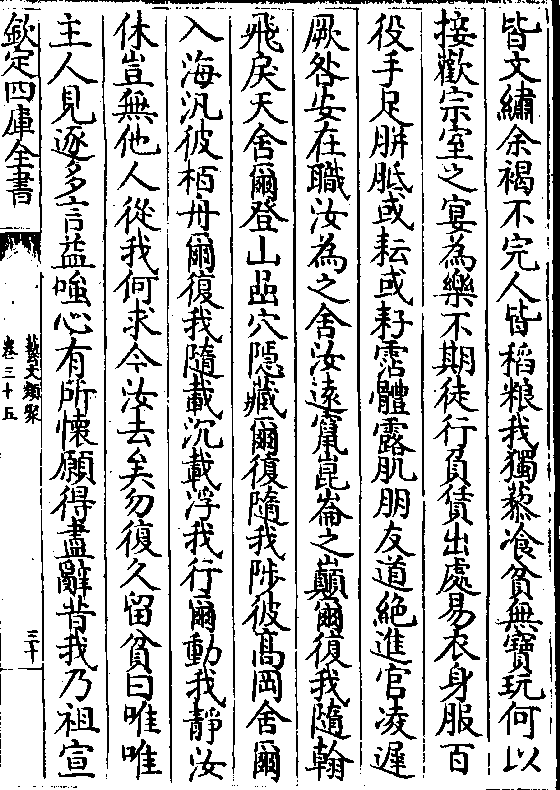 皆文繡余褐不完人皆稻粮我獨藜飡貧無寶玩何以
接歡宗室之宴為樂不期徒行負賃出處易衣身服百
役手足胼胝或耘或耔霑體露肌朋友道絕進官凌遲
厥咎安在職汝為之舍汝遠竄崑崙之巔爾復我隨翰
飛戾天舍爾登山嵒穴隱藏爾復隨我陟彼高岡舍爾
入海汎彼栢舟爾復我隨載沉載浮我行爾動我靜汝
休豈無他人從我何求今汝去矣勿復久留貧曰唯唯
主人見逐多言益嗤心有所懷願得盡辭昔我乃祖宣
欽定四庫全書
藝文類聚
卷三十五
三十